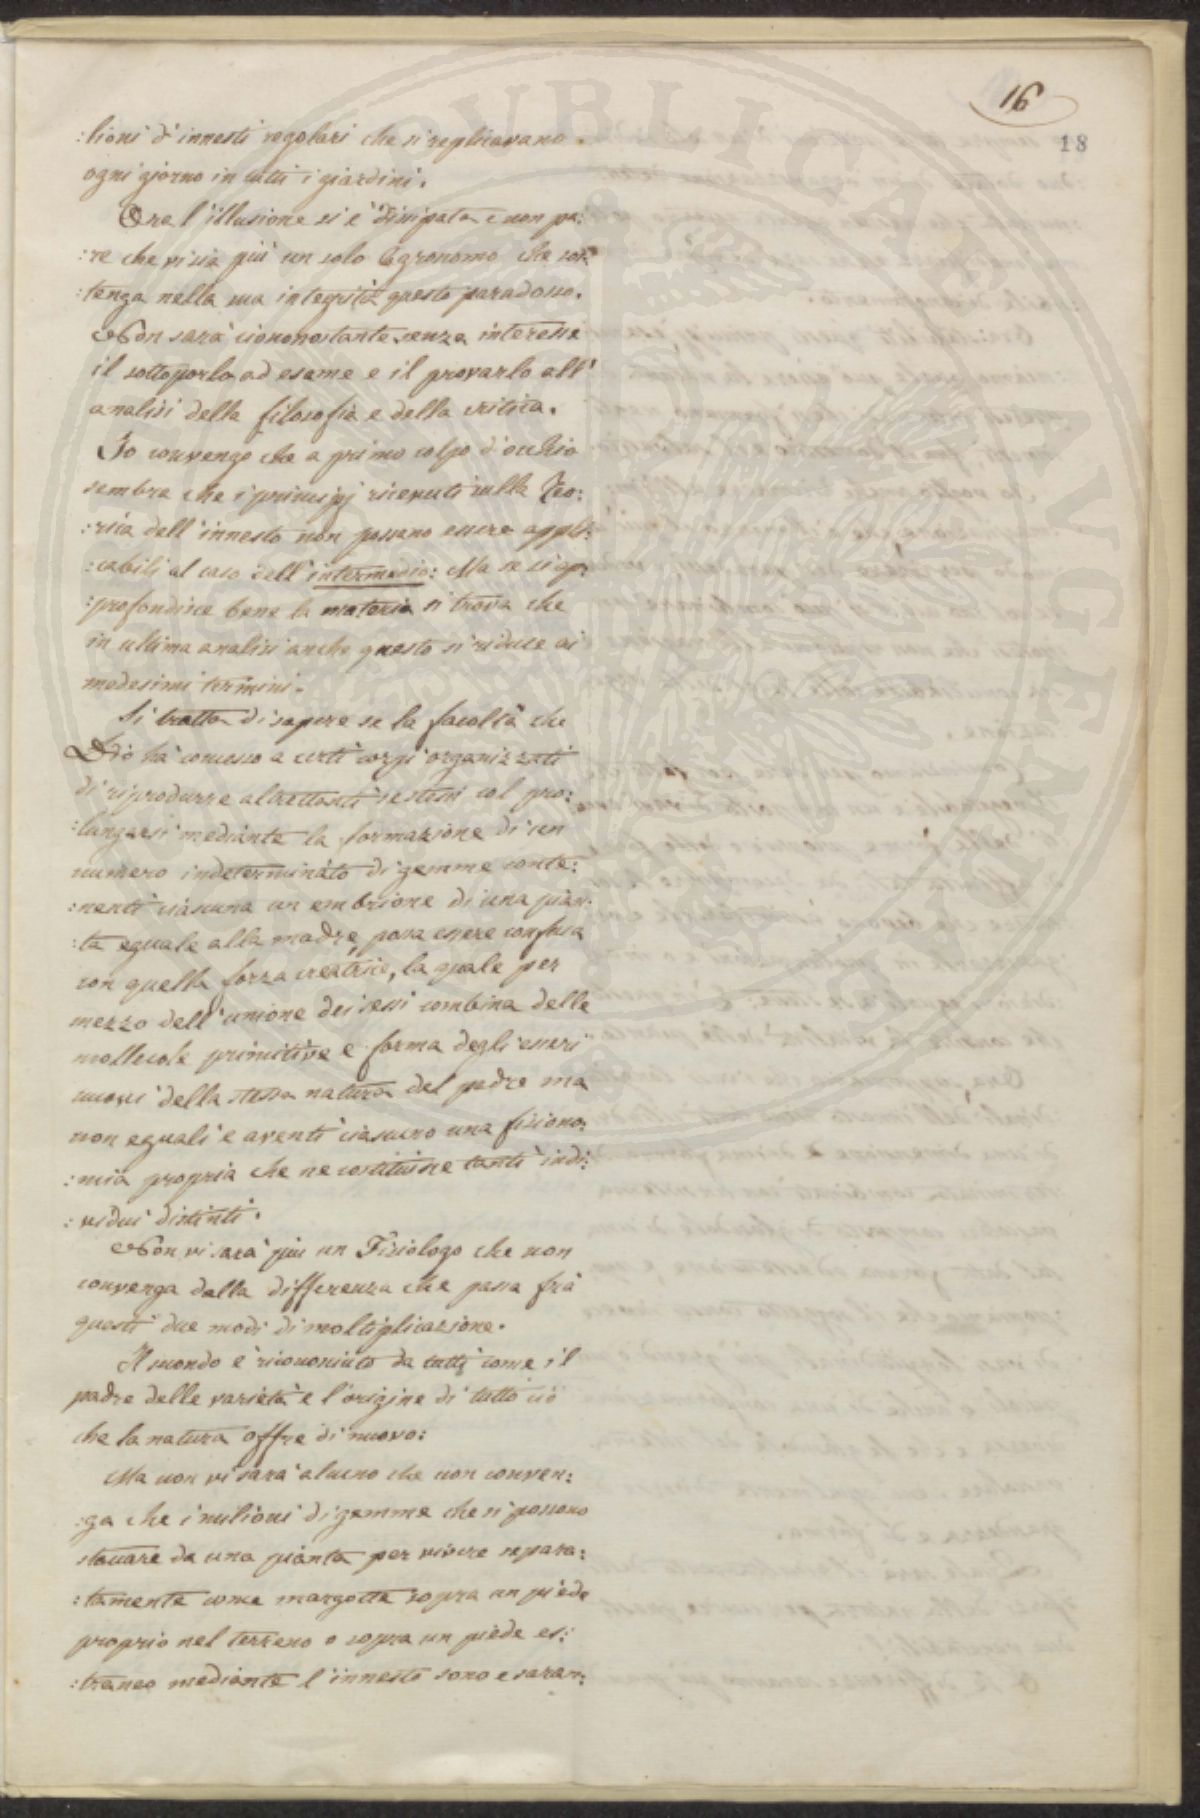 16
18
:lioni d'innesti regolari che si replicavano
ogni giorno in tutti i giardini.
Ora l'illusione si è dissipata e non pa:
:re che vi sia più un solo Agronomo che sos:
:tenga nella sua integrità questo paradosso.
Non sarà ciononostante senza interesse
il sottoporlo ad esame e il provarlo all'
analisi della filosofia e della critica.
Io convengo che a primo colpo d'occhio
sembra che i principj ricevuti sulla Teo:
:ria dell'innesto non possano essere appli:
:cabili al caso dell'intermedio: Ma se si ap:
:profondisce bene la materia si trova che
in ultima analisi anche questo si riduce ai
medesimi termini.
Si tratta di sapere se la facoltà che
Dio ha concesso a certi corpi organizzati
di riprodurre altrettanti se stessi col pro:
:lungarsi mediante la formazione di un
numero indeterminato di gemme conte:
:nenti ciascuna un embrione di una pian:
:ta eguale alla madre, possa essere confusa
con quella forza creatrice, la quale per
mezzo dell'unione dei sessi combina delle
mollecole primitive e forma degli esseri
nuovi della stessa natura del padre ma
non eguali e aventi ciascuno una fisiono:
:mia propria che ne costituisce tanti indi:
:vidui distinti.
Non vi sarà più un Fisiologo che non
convenga della differenza che passa frà
questi due modi di moltiplicazione.
Il secondo è riconosciuto da tutti come il
padre delle varietà e l'origine di tutto ciò
che la natura offre di nuovo:
Ma non vi sarà alcuno che non conven:
:ga che i milioni di gemme che si possono
staccare da una pianta per vivere separa:
:tamente come margotte sopra un piede
proprio nel terreno o sopra un piede es:
:traneo mediante l'innesto sono e saran: